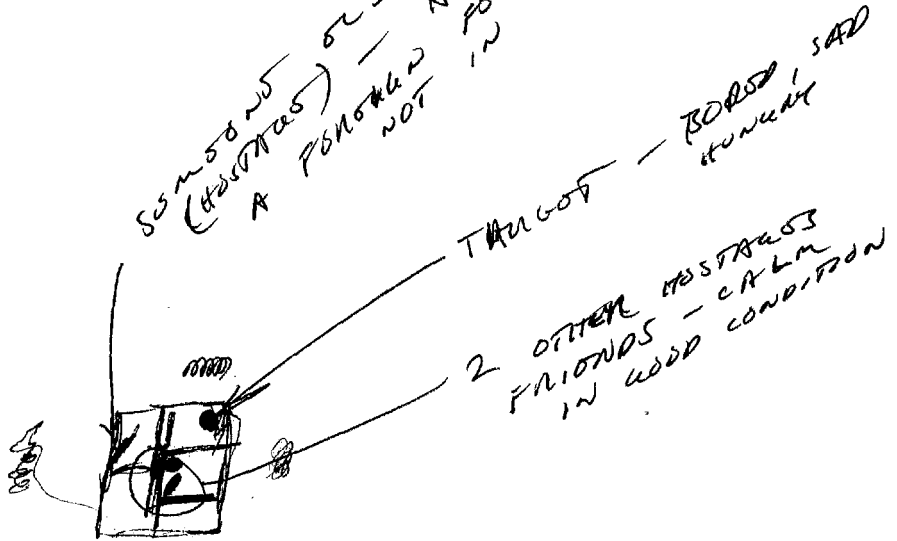 SOMEONE
(HOSTAGES) —
A FOREIGN
NOT IN
TARGET — BORED, SAD
HUNGRY
2 OTHER HOSTAGES
FRIENDS - CALM
IN GOOD CONDITION